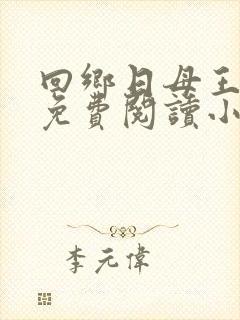 回鄉日母王
免費閱讀小
李元偉